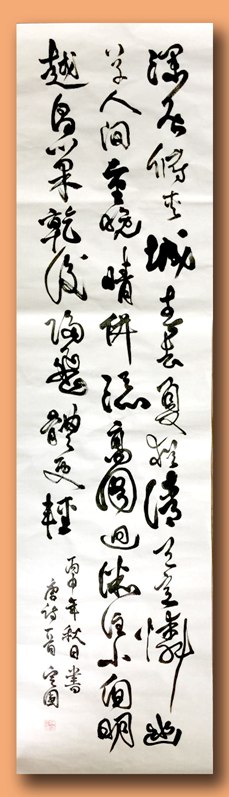 深居俯夹城春去夏猶清天意憐幽
草人间重晚晴併添高阁迥微注小窗明
越鸟巢乾後歸飛體更輕
丙申年秋日書
唐诗一首